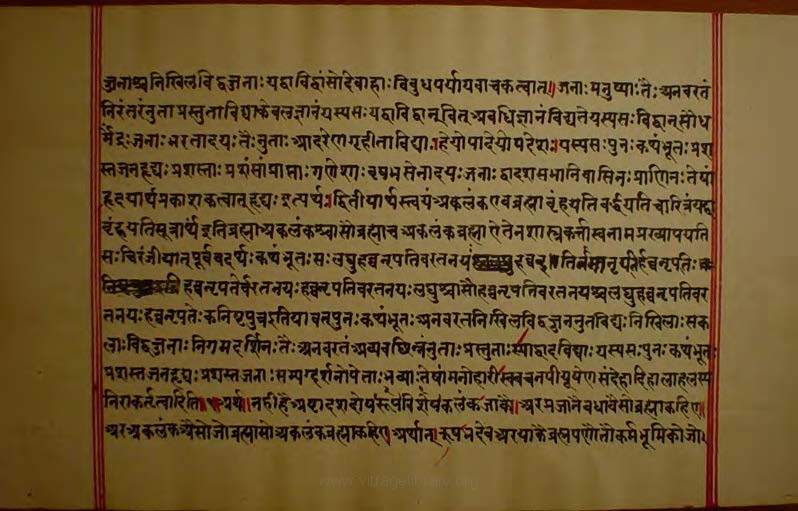 ज्जनाश्च निखिलविद्वज्जनाः यद्वा विद्वांसो देवाद्याः विबुधपर्यायवाचकत्वात्॥ जनाः मनुष्याः तैः अनवरतं
निरंतरं नुता प्रस्तुता विद्या केवलज्ञानं यस्य सः यद्वा विद्वान् वित् अवधिज्ञानं विद्यते यस्य सः विद्वान् सौध
र्मेंद्रः जनाः भरतादयः तैः नुताः आदरेण गृहीता विद्या। हेयोपादेयोपदेशः। यस्य सः पुनः कथंभूतः प्रश
स्तजनहृद्यः प्रशस्ताः प्रशंसां प्राप्ताः गणेशाः वृषभसेनादयः जनाः द्वादशसभानिवासिनः प्राणिनः तेषां
हृदयार्थप्रकाशकत्वात् हृद्यः इत्यर्थः। द्वितीयार्थस्त्वयं अकलंक एव ब्रह्मा वृंहयति वर्द्धयति चारित्रं यद्वा
वृंहयति सूत्रार्थं इति ब्रह्मा अकलंकश्चासौ ब्रह्मा च अकलंकब्रह्मा ऐतेन शास्त्रकर्त्ता स्वनाम प्रख्यापयति
सः चिरं जीयात् पूर्ववदर्थः कथंभूतः सः लघुहव्वनृपतिवरतनयः हव्वनृपतिः
हव्वनृपतेर्वरतनयः हव्वनृपतिवरतनयः लघुश्चासौ हव्वनृपतिवरतनयश्च लघुहव्वनृपतिवर
तनयः हव्वनृपतेः कनिष्ठपुत्र इति यावत् पुनः कथंभूतः अनवरतनिखिलविद्वज्जननुतविद्यः निखिलाः सक
लाः विद्वज्जनाः निगमदर्शिनः तैः अनवरतं अव्यवछिन्नं नुताः प्रस्तुताः स्याद्वादविद्याः यस्य सः पुनः कथंभूतः
प्रशस्तजनहृद्यः प्रशस्तजनाः सम्यग्दर्शनोपेताः भव्याः तेषां मनोहारी स्ववचनपीयूषेण संदेहादिहालाहलस्य
निराकर्तृत्वादिति॥ अर्थ। नही है अष्टादश दोष रूप विशेष कलंक जाकै। अर प्रजानै वधावै सो ब्रह्मा कहिए।
अर अकलंक असो जो ब्रह्मा सो अकलंकब्रह्मा कहिए। अर्थात् ऋषभदेव अर या कैवल्यपणै तौ कर्मभूमि को जो।
www.vitragelibrary.org